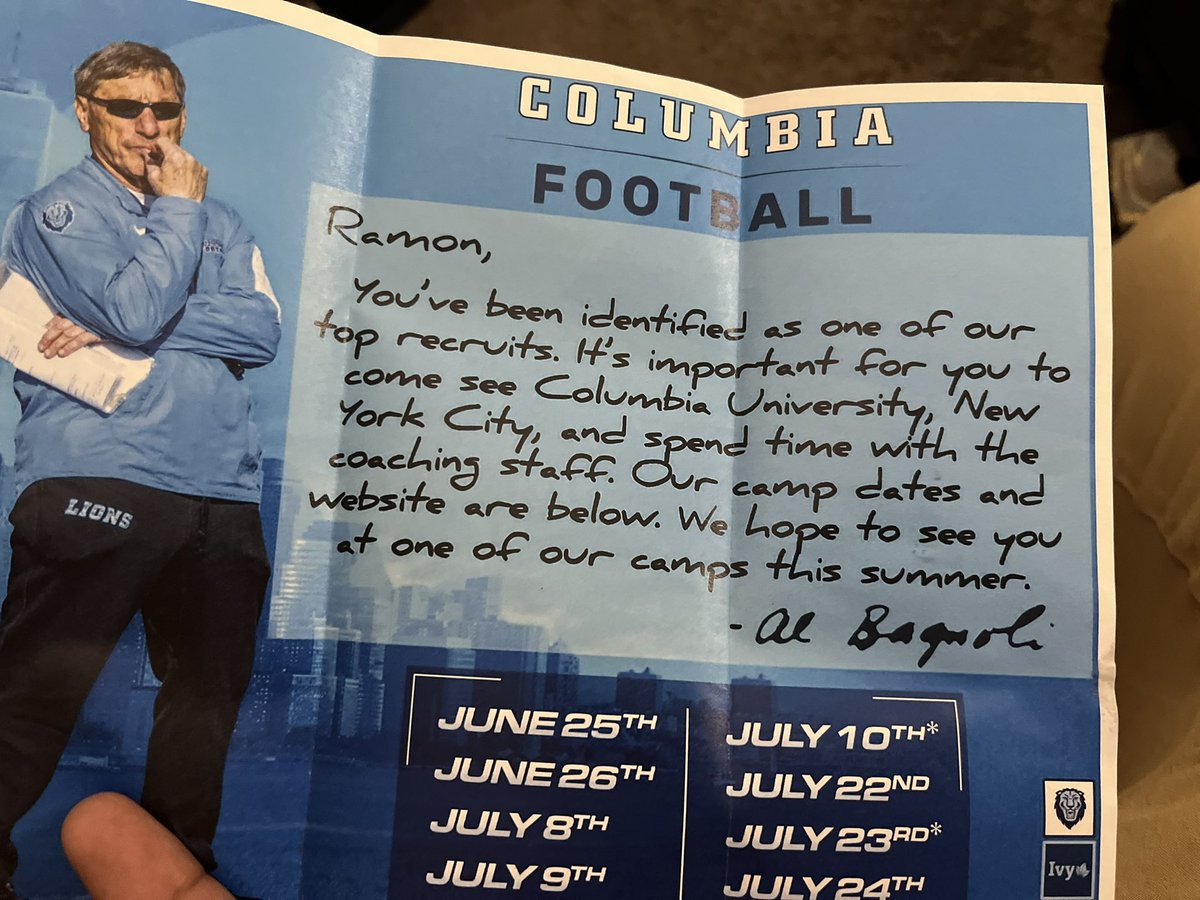 COLUMBIA
FOOTBALL
Ramon,
You've been identified as one of our
top recruits. It's important for you to
come see Columbia University, New
York City, and spend time with the
coaching staff. Our camp dates and
website are below. We hope to see you
at one of our camps this summer.
- Al Bagnoli
LIONS
JUNE 25TH
JUNE 26TH
JULY 8TH
JULY 9TH
JULY 10TH*
JULY 22ND
JULY 23RD*
JULY 24TH
Ivy